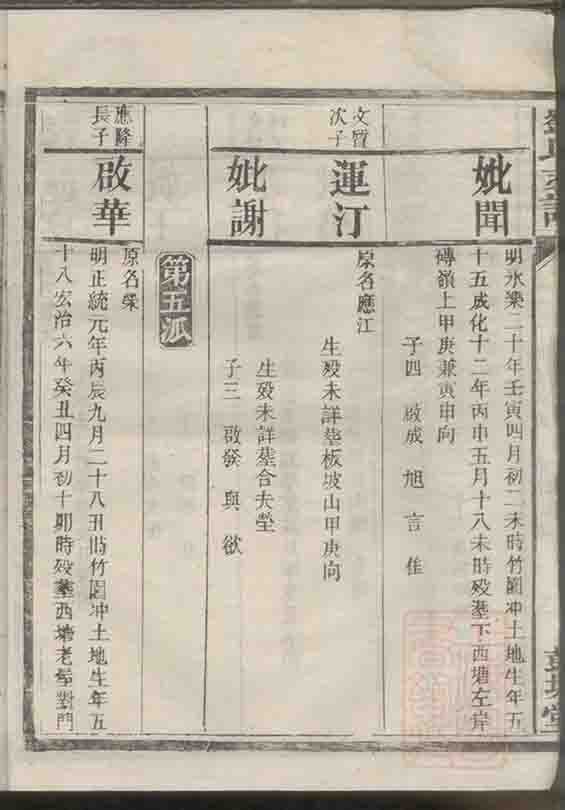 妣聞
明永樂二十年壬寅四月初二未時竹園冲土地生年五
十五成化十二年丙申五月十八未時殁塟下西塘左岸
磚嶺上甲庚兼寅申向
子四 啟成 旭 言 佳
文質
次子
運汀
原名應江
生殁未詳塟板坡山甲庚向
妣謝
生殁未詳塟合夫塋
子三 啟發 與 欲
第五派
應隆
長子
啟華
原名榮
明正統元年丙辰九月二十八丑時竹園冲土地生年五
十八宏治六年癸丑四月初十卯時殁塟西塘老屋對門